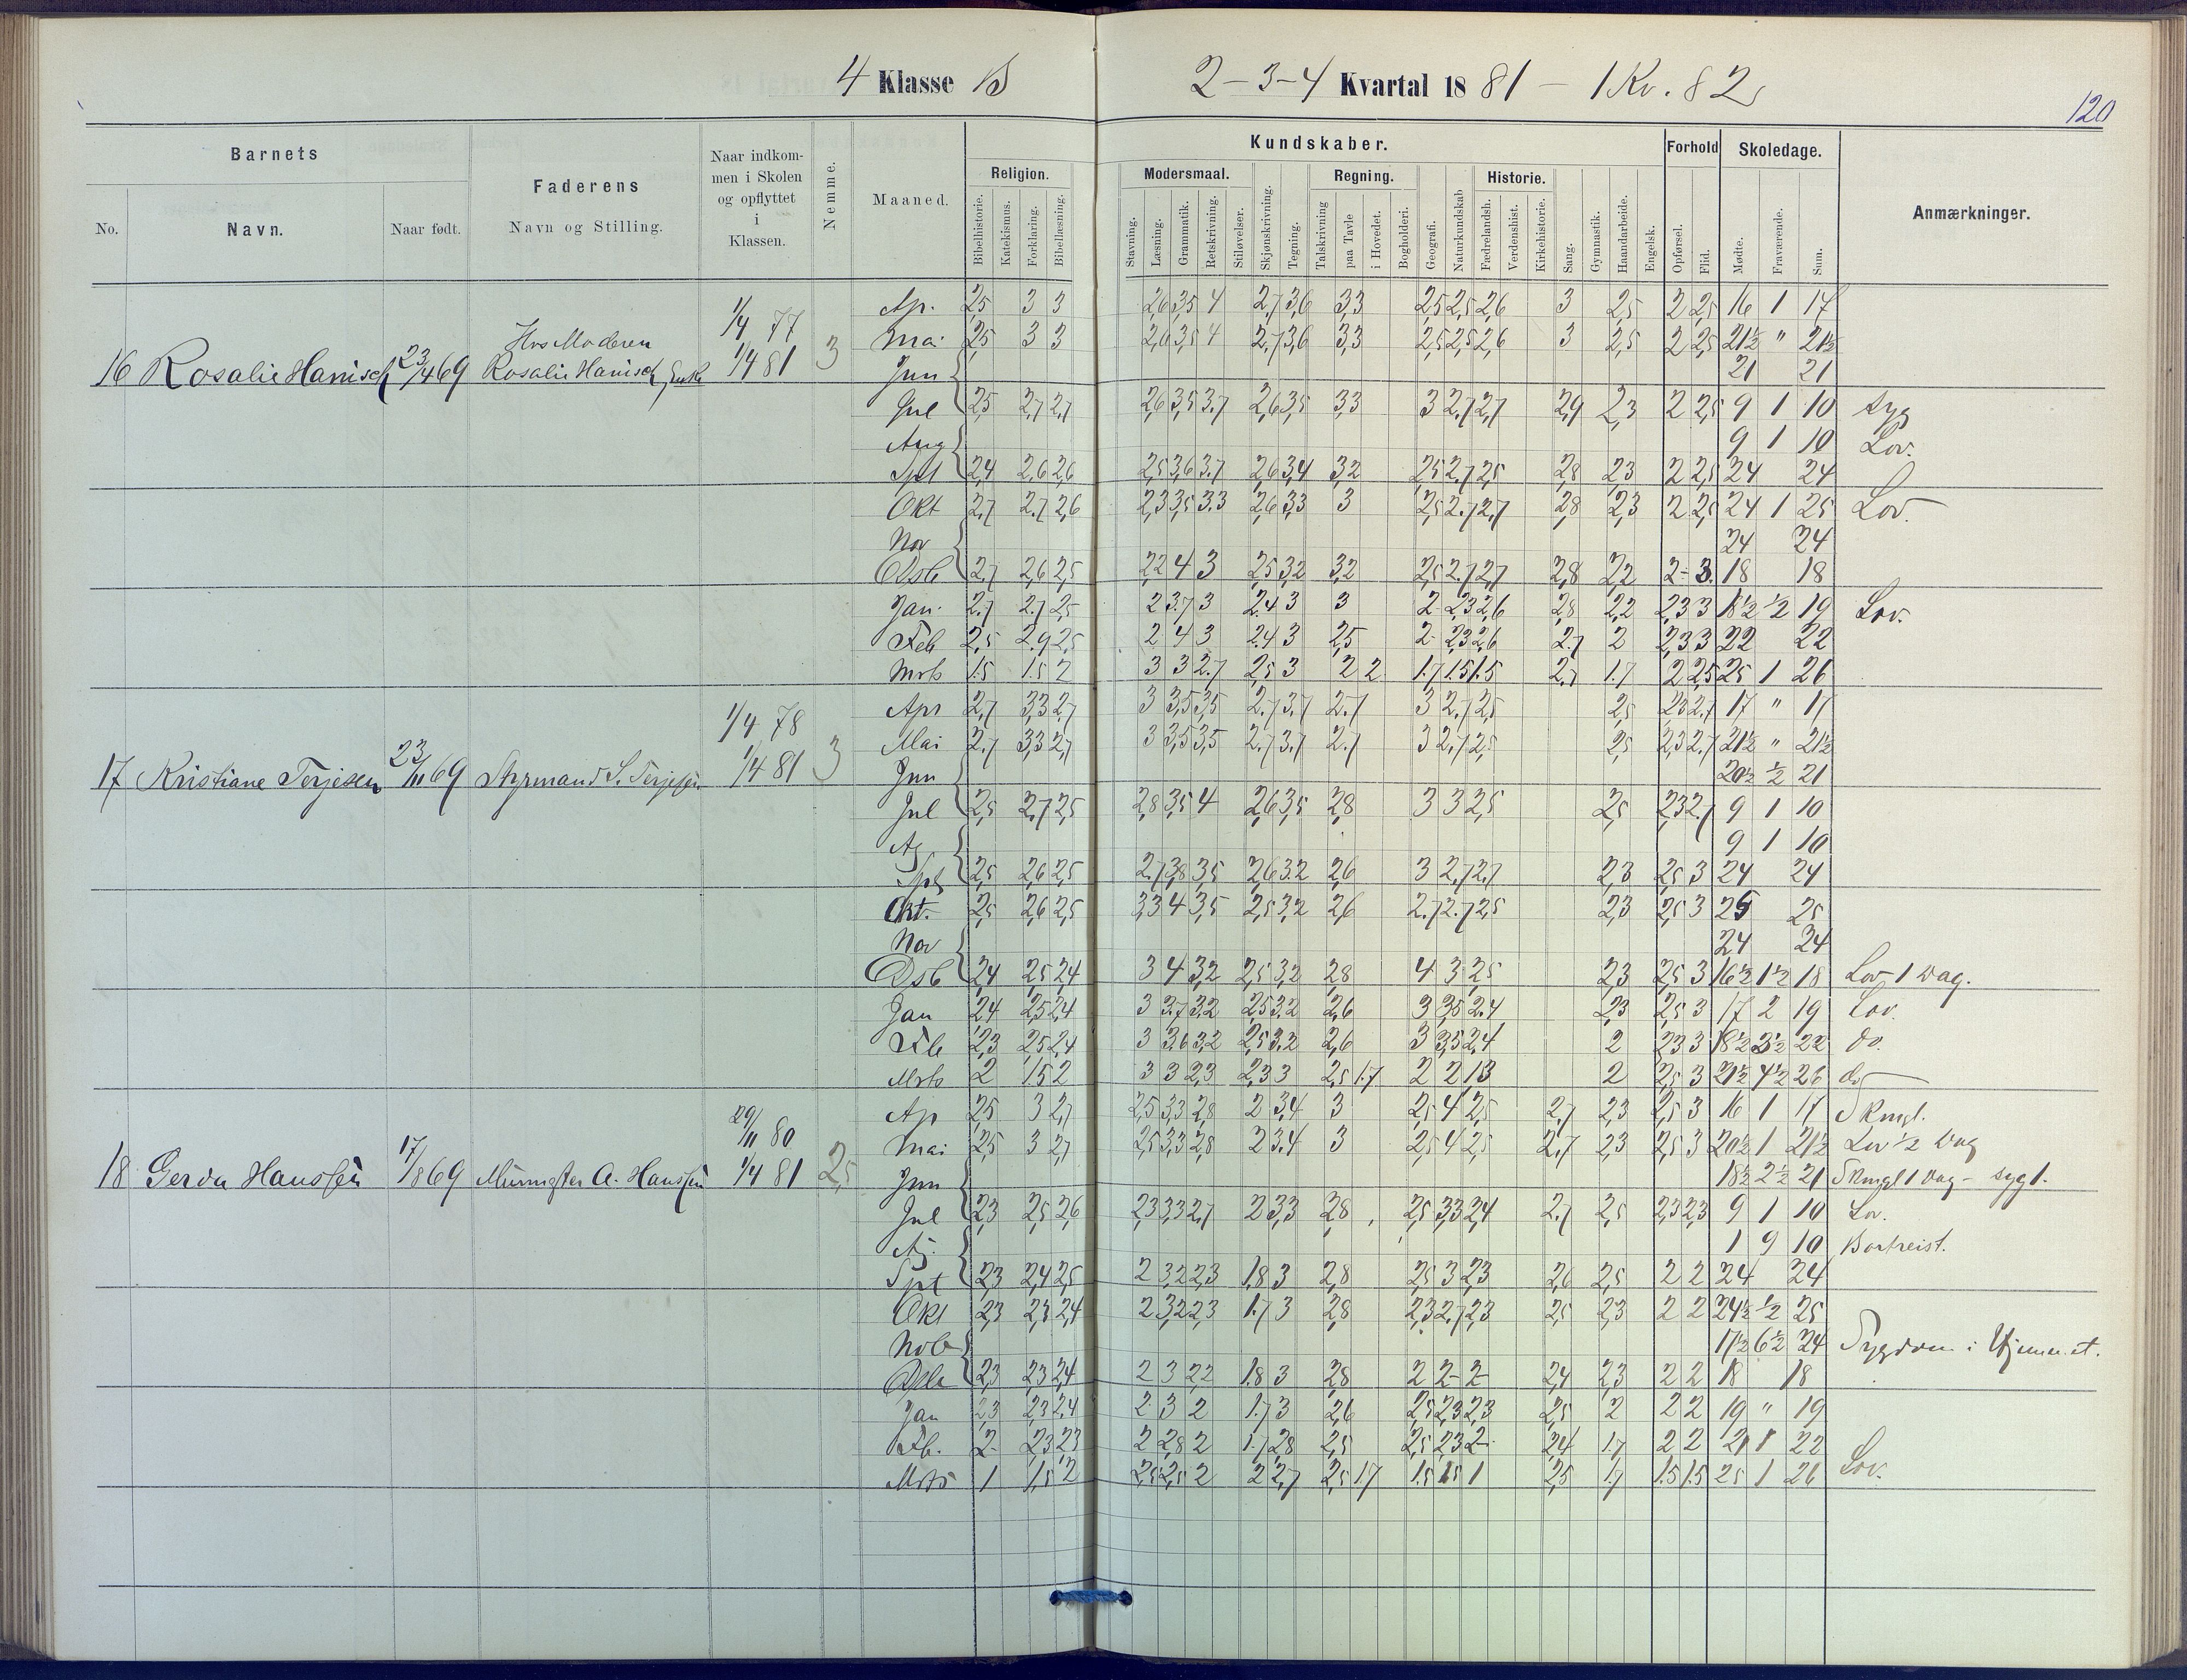 4 Klasse B
2-3-4 Kvartal 1881 - 1 Kv. 82
120
Barnets
Faderens
Naar indkom-
men i Skolen
og opflyttet
i
Klassen.
Nemme.
Maaned.
Kundskaber.
Forhold
Skoledage.
Anmærkninger.
Religion.
Modersmaal.
Regning.
Historie.
No.
Navn.
Naar født.
Navn og Stilling.
Bibelhistorie.
Katekismus.
Forklaring.
Bibellæsning.
Stavning.
Læsning.
Grammatik.
Retskrivning.
Stiløvelser.
Skjønskrivning.
Tegning.
Talskrivning
paa Tavle
i Hovedet.
Bogholderi.
Geografi.
Naturkundskab
Fædrelandsh.
Verdenshist.
Kirkehistorie.
Sang.
Gymnastik.
Haandarbeide.
Engelsk.
Opførsel.
Flid.
Mødte.
Fraværende.
Sum.
16 Rosalie Hanisch 23/4 69 Hos Moderen Rosalie Hanisch, Enke 1/4 77 1/4 81 3
Ap. 2,5 3 3 2,6 3,5 4 2,7 3,6 3,3 2,5 2,5 2,6 3 2,5 2 2,5 16 1 17
Mai 2,5 3 3 2,6 3,5 4 2,7 3,6 3,3 2,5 2,5 2,6 3 2,5 2 2,5 21½ " 21½
Jun 21 21
Jul 2,5 2,7 2,7 2,6 3,5 3,7 2,6 3,5 3,3 3 2,7 2,7 2,9 2,3 2 2,5 9 1 10 Syg
Aug 9 1 10 Lov.
Spt 2,4 2,6 2,6 2,5 3,6 3,7 2,6 3,4 3,2 2,5 2,7 2,5 2,8 2,3 2 2,5 24 24
Okt 2,7 2,7 2,6 2,3 3,5 3,3 2,6 3,3 3 2,5 2,7 2,7 2,8 2,3 2 2,5 24 1 25 Lov.
Nov 24 24
Dsb 2,7 2,6 2,5 2,2 4 3 2,5 3,2 3,2 2,5 2,7 2,7 2,8 2,2 2- 3. 18 18
Jan. 2,7 2,7 2,5 2 3,7 3 2,4 3 3 2 2,3 2,6 2,8 2,2 2,3 3 18½ ½ 19 Lov.
Feb 2,5 2,9 2,5 2 4 3 2,4 3 2,5 2 2,3 2,6 2,7 2 2,3 3 22 22
Mrts 1.5 1.5 2 3 3 2.7 2,5 3 2 2 1.7 1.5 1.5 2,7 1.7 2 2,5 25 1 26
17 Kristiane Terjesen 23/11 69 Styrmand S. Terjesen 1/4 78 1/4 81 3
Apr 2,7 3,3 2,7 3 3,5 3,5 2,7 3,7 2,7 3 2,7 2,5 2,5 2,3 2,7 17 " 17
Mai 2,7 3,3 2,7 3 3,5 3,5 2,7 3,7 2,7 3 2,7 2,5 2,5 2,3 2,7 21½ " 21½
Jun 20½ ½ 21
Jul 2,5 2,7 2,5 2,8 3,5 4 2,6 3,5 2,8 3 3 2,5 2,5 2,3 2,7 9 1 10
Ag 9 1 10
Spt 2,5 2,6 2,5 2,7 3,8 3,5 2,6 3,2 2,6 3 2,7 2,7 2,3 2,5 3 24 24
Okt. 2,5 2,6 2,5 3,3 4 3,5 2,5 3,2 2,6 2,7 2,7 2,5 2,3 2,5 3 25 25
Nov 24 24
Dsb 2,4 2,5 2,4 3 4 3,2 2,5 3,2 2,8 4 3 2,5 2,3 2,5 3 16½ 1½ 18 Lov 1 Dag.
Jan 2,4 2,5 2,4 3 3,7 3,2 2,5 3,2 2,6 3 3,5 2.4 2,3 2,5 3 17 2 19 Lov.
Feb 2,3 2,5 2,4 3 3,6 3,2 2,5 3,2 2,6 3 3,5 2,4 2 2,3 3 18½ 3½ 22 do.
Mrts 2 1.5 2 3 3 2,3 2,3 3 2,5 1.7 2 2 1,3 2 2,5 3 21½ 4½ 26 do
18 Gerda Hanssen 17/8 69 Murmester A. Hanssen 29/11 80 1/4 81 2,5
Ap 2,5 3 2,7 2,5 3,3 2,8 2 3,4 3 2,5 4 2,5 2,7 2,3 2,5 3 16 1 17 Skmgl.
Mai 2,5 3 2,7 2,5 3,3 2,8 2 3,4 3 2,5 4 2,5 2,7 2,3 2,5 3 20½ 1 21½ Lov ½ Dag
Jun 18½ 2½ 21 Skmgl 1 Dag - syg 1.
Jul 2,3 2,5 2,6 2,3 3,3 2,7 2 3,3 2,8 2,5 3,3 2,4 2,7 2,5 2,3 2,3 9 1 10 Lov.
Ag. 1 9 10 Bortreist.
Spt 2,3 2,4 2,5 2 3,2 2,3 1,8 3 2,8 2,5 3 2,3 2,6 2,5 2 2 24 24
Okt 2,3 2,5 2,4 2 3,2 2,3 1.7 3 2,8 2,3 2,7 2,3 2,5 2,3 2 2 24½ ½ 25
Novb 17½ 6½ 24 Sygdom i Hjemmet.
Dsb 2,3 2,3 2,4 2 3 2,2 1.8 3 2,8 2 2 2 2,4 2,3 2 2 18 18
Jan 2,3 2,3 2,4 2 3 2 1.7 3 2,6 2,5 2,3 2,3 2,5 2 2 2 19 " 19
Fb. 2 2,3 2,3 2 2,8 2 1.7 2,8 2,5 2,5 2,3 2 2,4 1.7 2 2 21 1 22
Mrts 1 1,5 2 2,5 2,5 2 2 2,7 2,5 1.7 1.5 1.5 1 2,5 1.7 1.5 1.5 25 1 26 Lov.